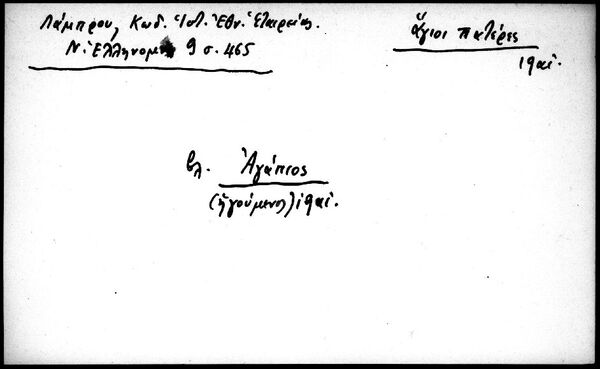 Λάμπρου, Κωδ. Ἱστ. Ἐθν. Ἑταιρείας.
Ν. Ἑλληνομν 9 σ. 465
ἅγιοι πατέρες
19 αἰ.
βλ. Ἀγάπιος
(ἡγούμενος) 19 αἰ.